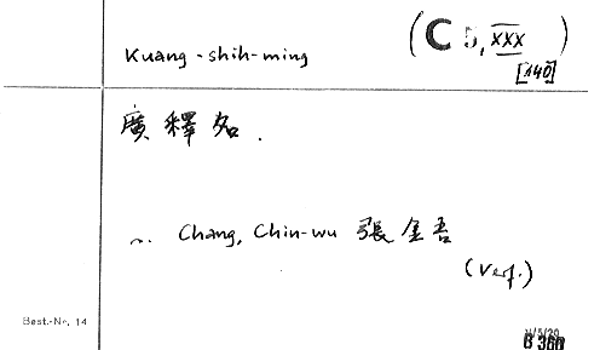 Kuang-shih-ming
(C 5, xxx)
[140]
廣釋名.
Chang, Chin-wu 張金吾
(Verf.)
Best.-Nr. 14
B 360